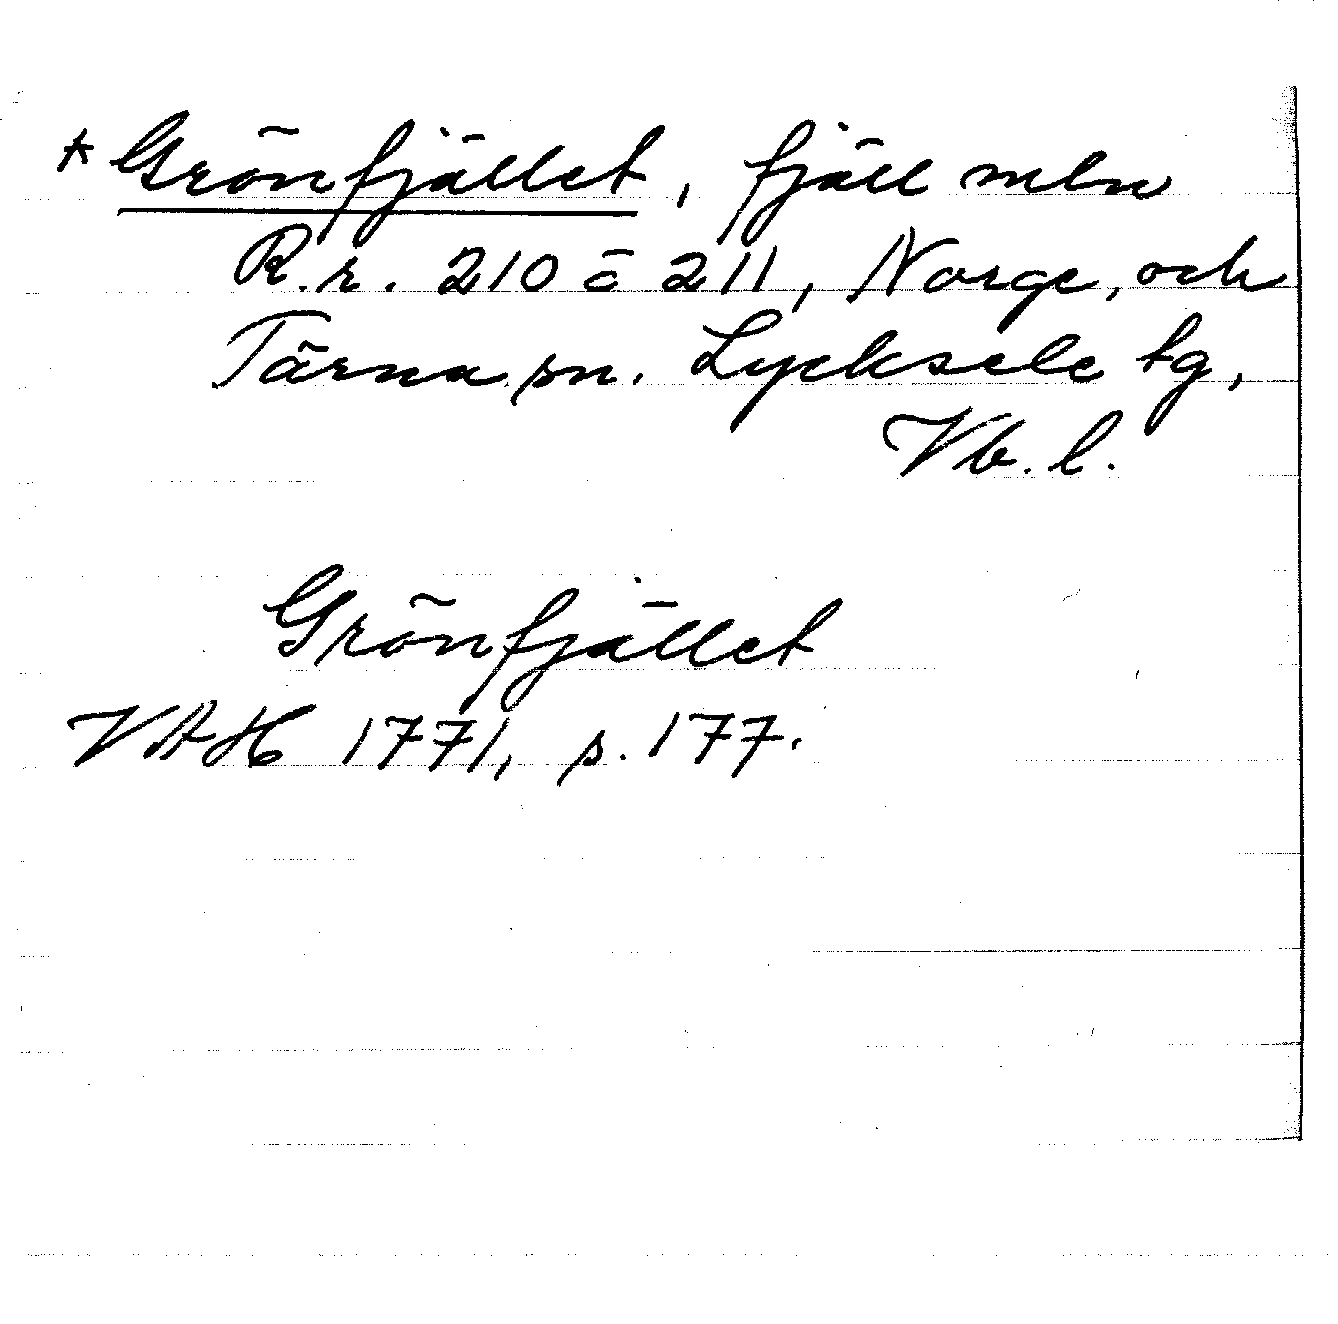 * Grönfjället, fjäll mln
R.r. 210 o 211, Norge, och
Tärna sn. Lycksele tg,
Vb. l.
Grönfjället
VAH 1771, s. 177.